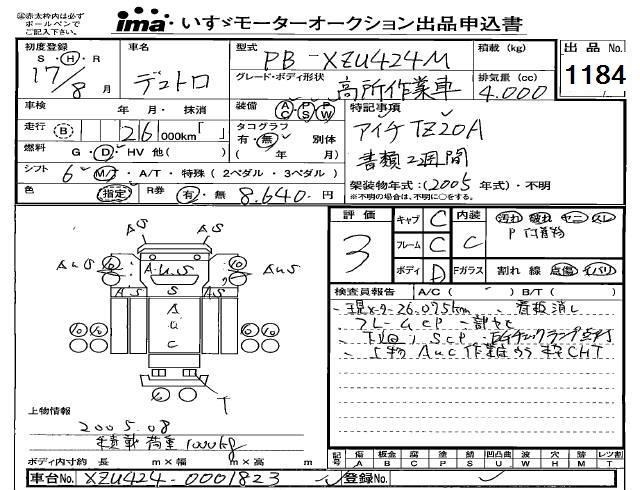 ◎赤太枠内は必ず
ボールペンで
ご記入下さい。
ima いすゞモーターオークション出品申込書
初度登録
S・H・R
17/8 月
車名
デュトロ
型式
PB-XZU424M
グレード・ボディ形状
高所作業車
積載 (kg)
排気量 (cc)
4.000
出品No.
1184
車検 年・月・抹消
走行 (B) 26,000km「 」
燃料 G・D・HV 他( )
シフト 6 M/T・A/T・特殊 (2ペダル・3ペダル)
色 指定 R券 有・無 8.640-円
装備 AC PS PW
タコグラフ
有・無 別体
( 年/ 月)
特記事項
アイチ TZ20A
書類2週間
架装物年式:(2005年式)・不明
※不明の場合は、不明に○をする。
評価
3
キャブ C
フレーム C
ボディ D
内装 C
Fガラス
汚れ 破れ ヤニ スレ
P 付着物
割れ 線 点傷 (イバリ)
検査員報告 A/C( ) B/T( )
26.095km 看板消し
AUS
AUS
AUS
A.U.S
S
A'S
A'S
A
U
C
T
上物情報
2005.08
積載荷重1000kg
ボディ内寸約 長 m×幅 m×高 m
記号 傷A 板金B 腐C 塗P 錆S 凹凸曲U 波W 穴H 跡M レツ割T
車台No. XZU424-0001823 登録No.